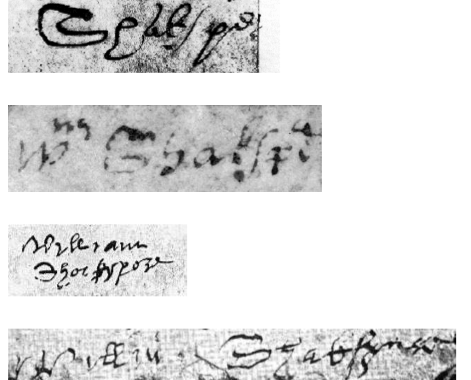 Shakspe
Wm Shakspe
William
Shakspere
Willm Shakspere